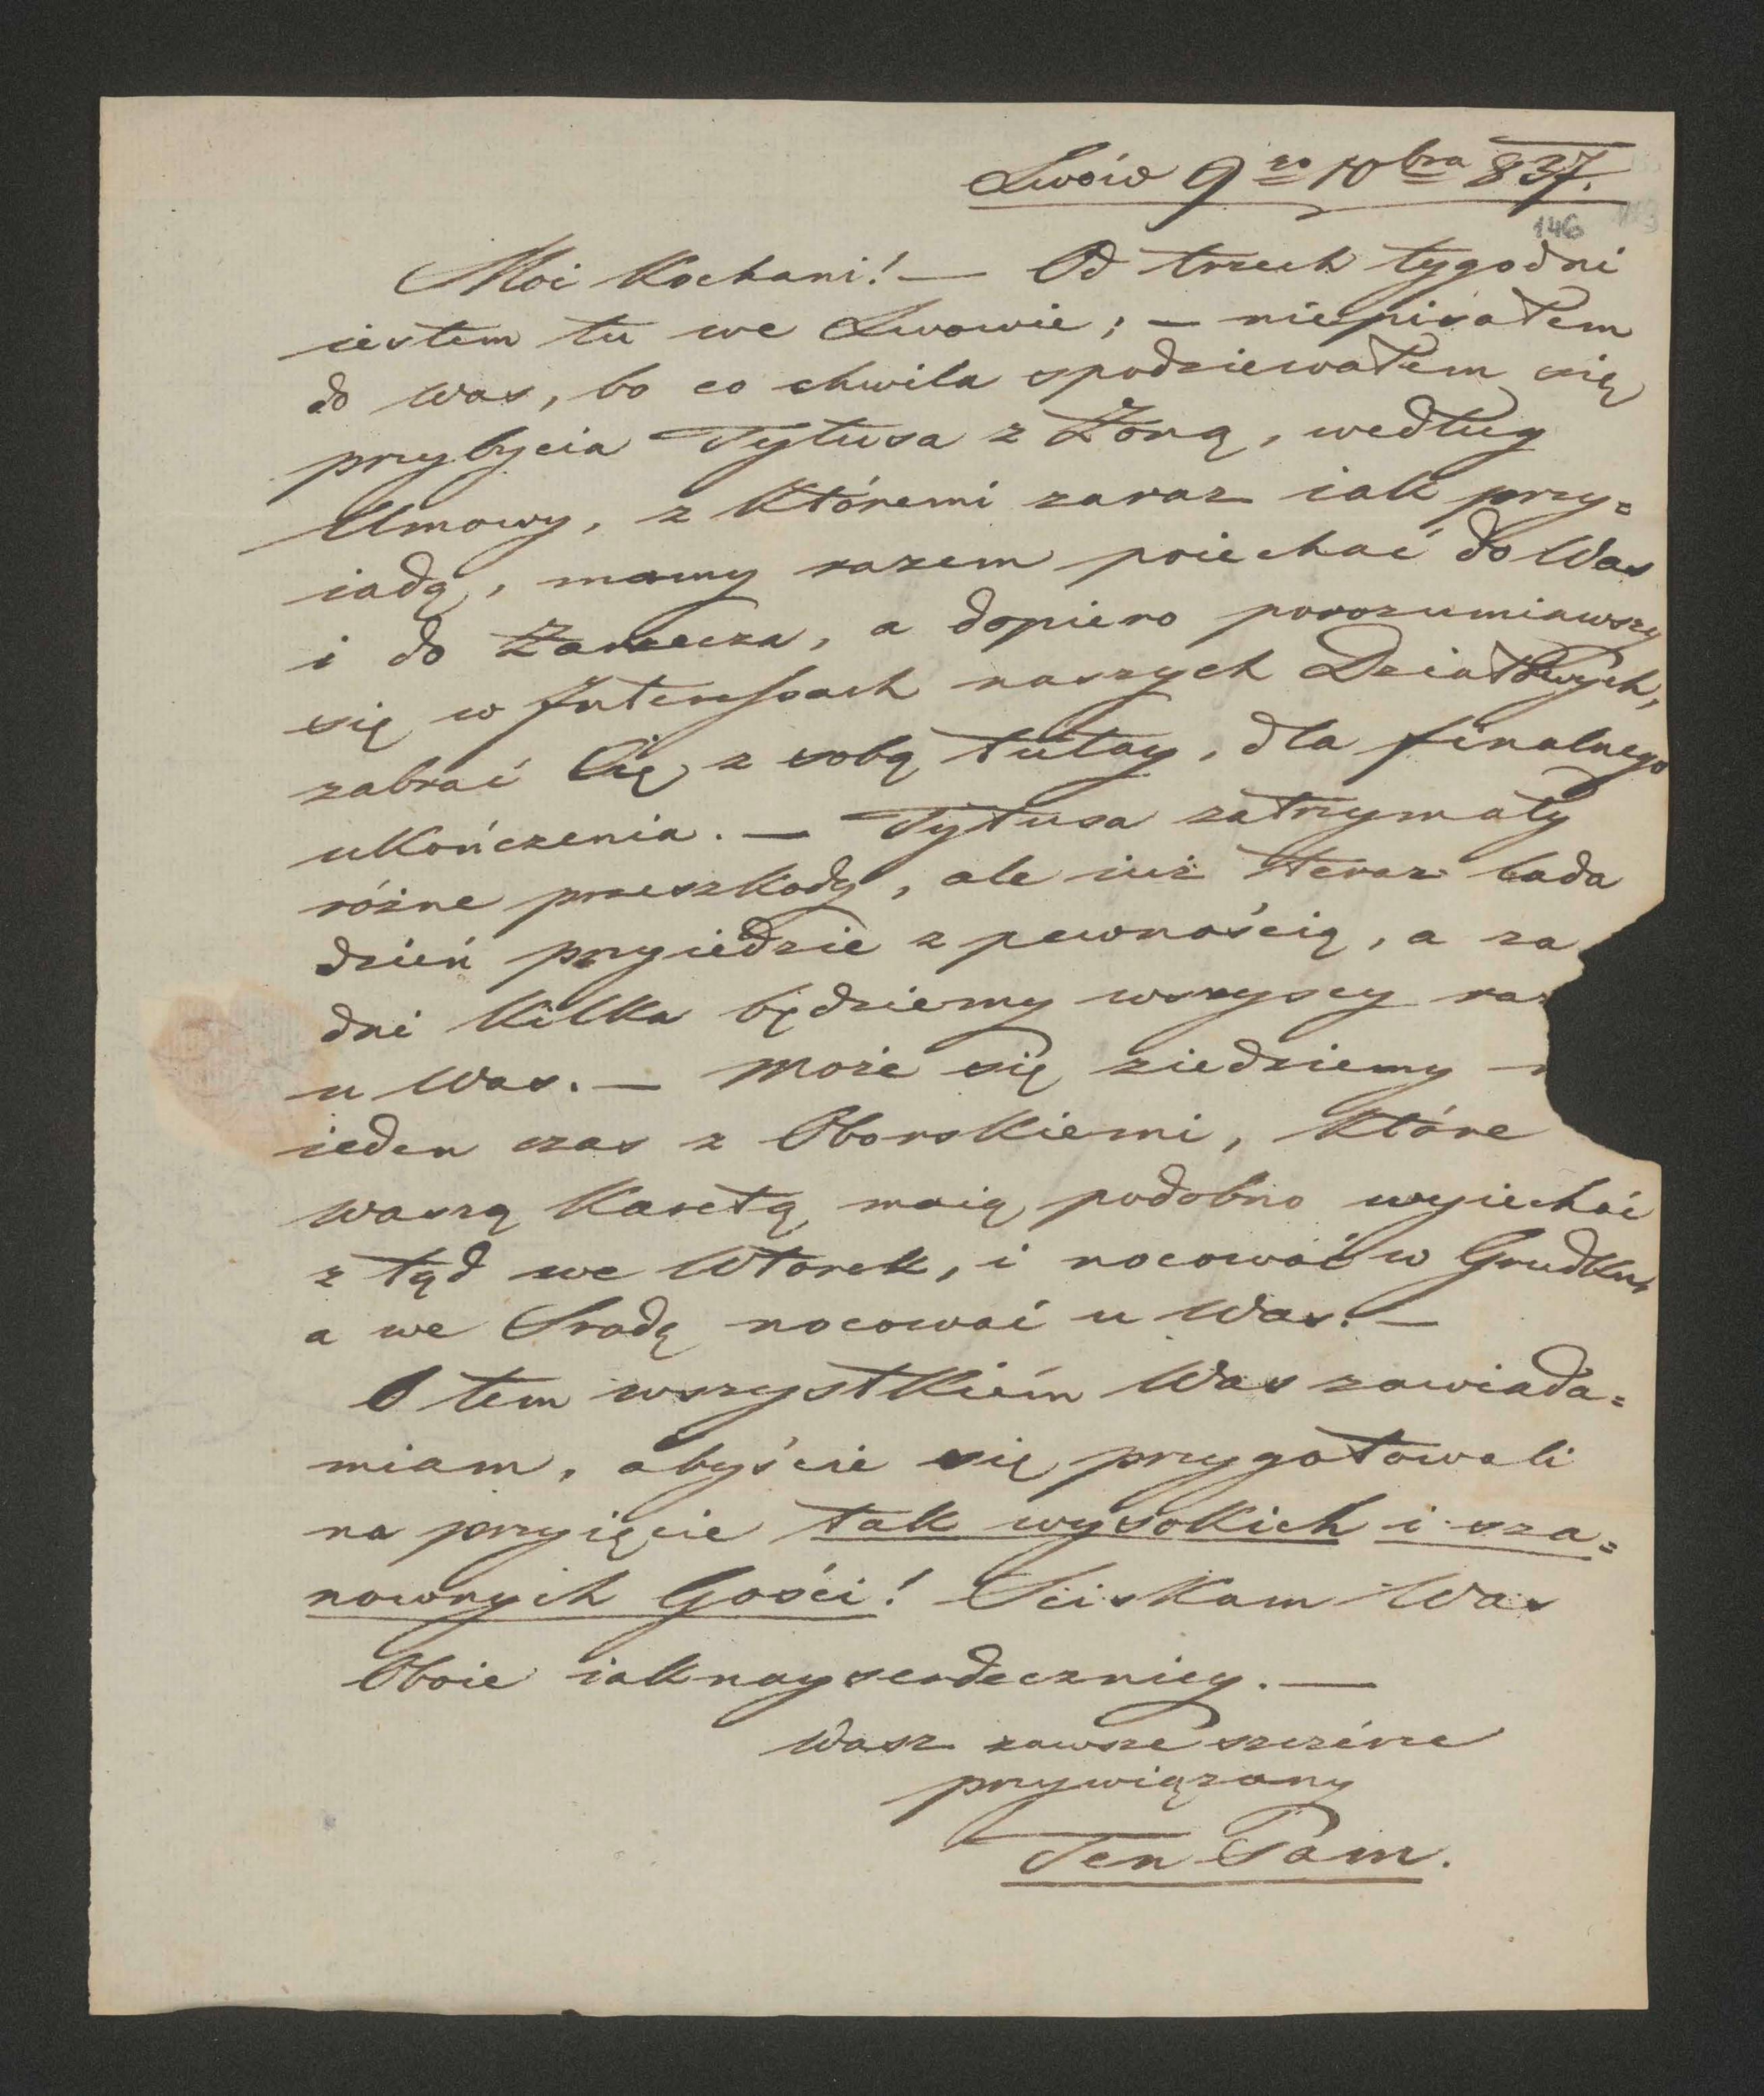 Lwów 9go 10bra 837.
146
Moi Kochani! — Od trzech tygodni
iestem tu we Lwowie; — niepisałem
do Was, bo co chwila spodziewałem się
przybycia Tytusa z Żoną, według
Umowy, z któremi zaraz iak przy=
iadą, mamy razem poiechać do Was
i do Zarzecza, a dopiero porozumiawszy
się w Interessach naszych Działowych,
zabrać Cię z sobą tutay, dla finalnego
ukończenia. — Tytusa zatrzymały
różne przeszkody, ale iuż teraz lada
dzień przyiedzie z pewnością, a za
dni kilka będziemy wszyscy raz
u Was. — Może się ziedziemy
ieden czas z Oborskiemi, które
waszą Karetą maią podobno wyiechać
z tąd we Wtorek, i nocować w Grudku,
a we Srodę nocować u Was. —
O tem wszystkiém Was zawiada=
miam, abyście się przygotowali
na przyięcie tak wysokich i sza=
nownych Gości! Sciskam Was
Oboie iaknayserdeczniey. —
Wasz zawsze szczérze
przywiązany
Ten Sam.